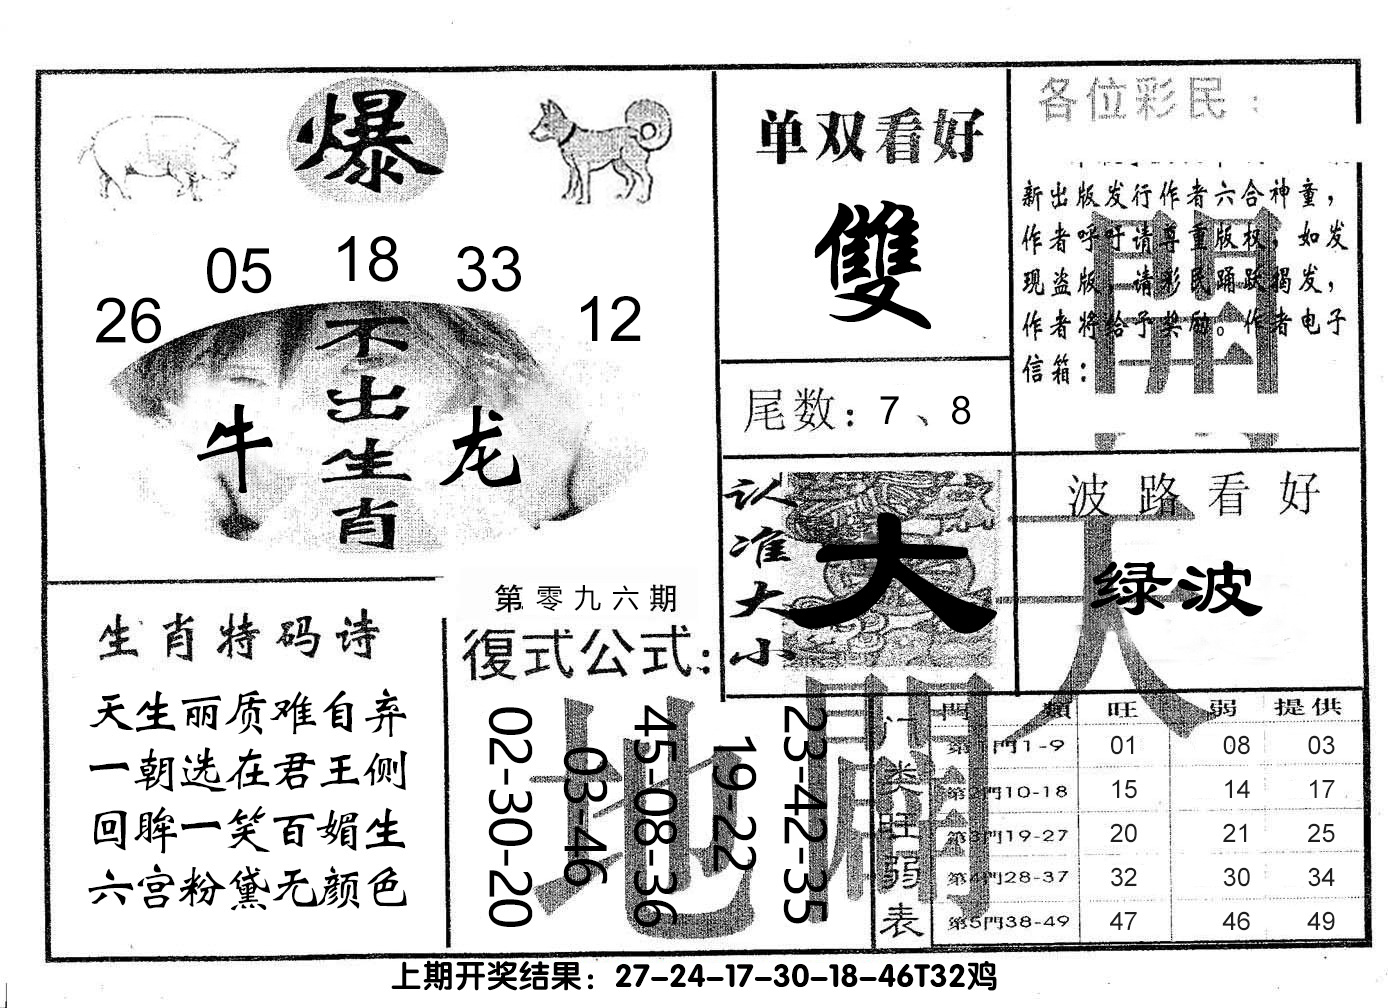 爆
05 18 33
26 12
不出生肖
牛 龙
单双看好
雙
尾数：7、8
认准大小
大
各位彩民：
新出版发行作者六合神童，
作者呼吁请尊重版权，如发
现盗版，请彩民踊跃揭发，
作者将给予奖励。作者电子
信箱：
開
波路看好
绿波
天
生肖特码诗
天生丽质难自弃
一朝选在君王侧
回眸一笑百媚生
六宫粉黛无颜色
第零九六期
復式公式：
02-30-20
03-46
45-08-36
19-22
23-42-35
地
開
门类旺弱表
門類 旺 弱 提供
第1門1-9 01 08 03
第2門10-18 15 14 17
第3門19-27 20 21 25
第4門28-37 32 30 34
第5門38-49 47 46 49
上期开奖结果：27-24-17-30-18-46T32鸡